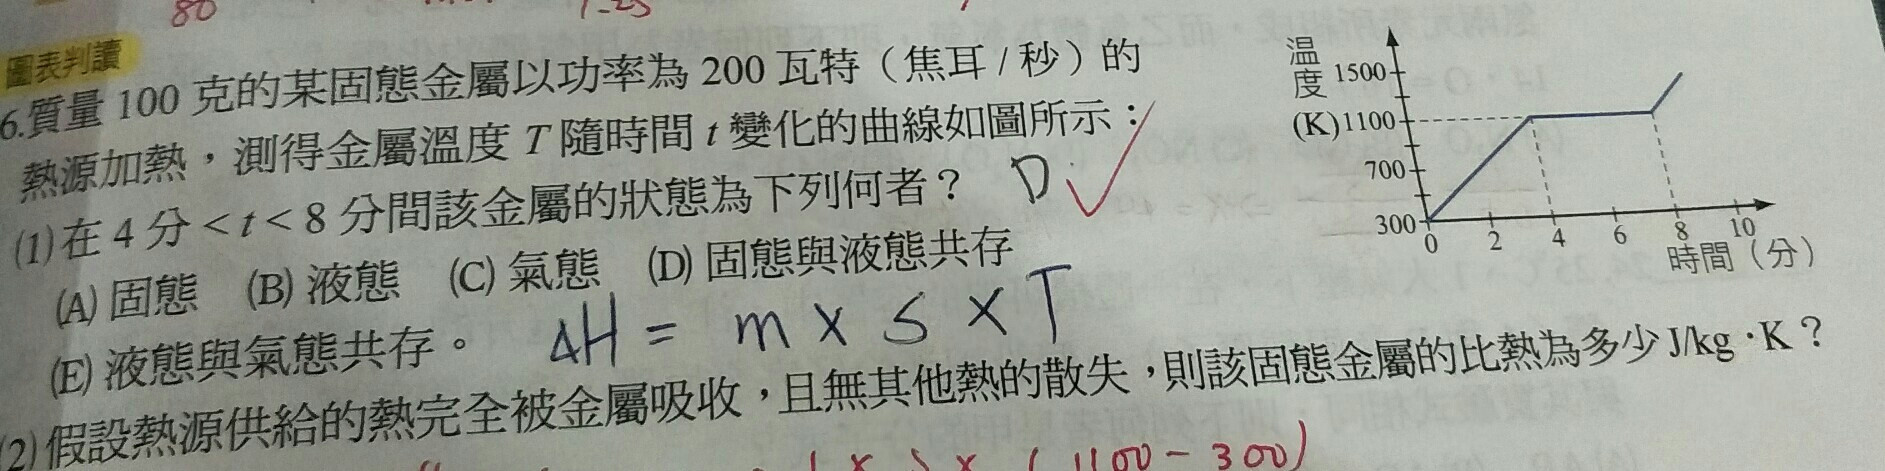 80
1.25
圖表判讀
6.質量 100 克的某固態金屬以功率為 200 瓦特（焦耳／秒）的
熱源加熱，測得金屬溫度 T 隨時間 t 變化的曲線如圖所示：
(1)在 4 分 < t < 8 分間該金屬的狀態為下列何者？ D
(A) 固態 (B) 液態 (C) 氣態 (D) 固態與液態共存
(E) 液態與氣態共存。
ΔH = m × S × T
(2)假設熱源供給的熱完全被金屬吸收，且無其他熱的散失，則該固態金屬的比熱為多少 J/kg·K？
(1100 - 300)
溫度
(K)
1500
1100
700
300
0 2 4 6 8 10
時間（分）